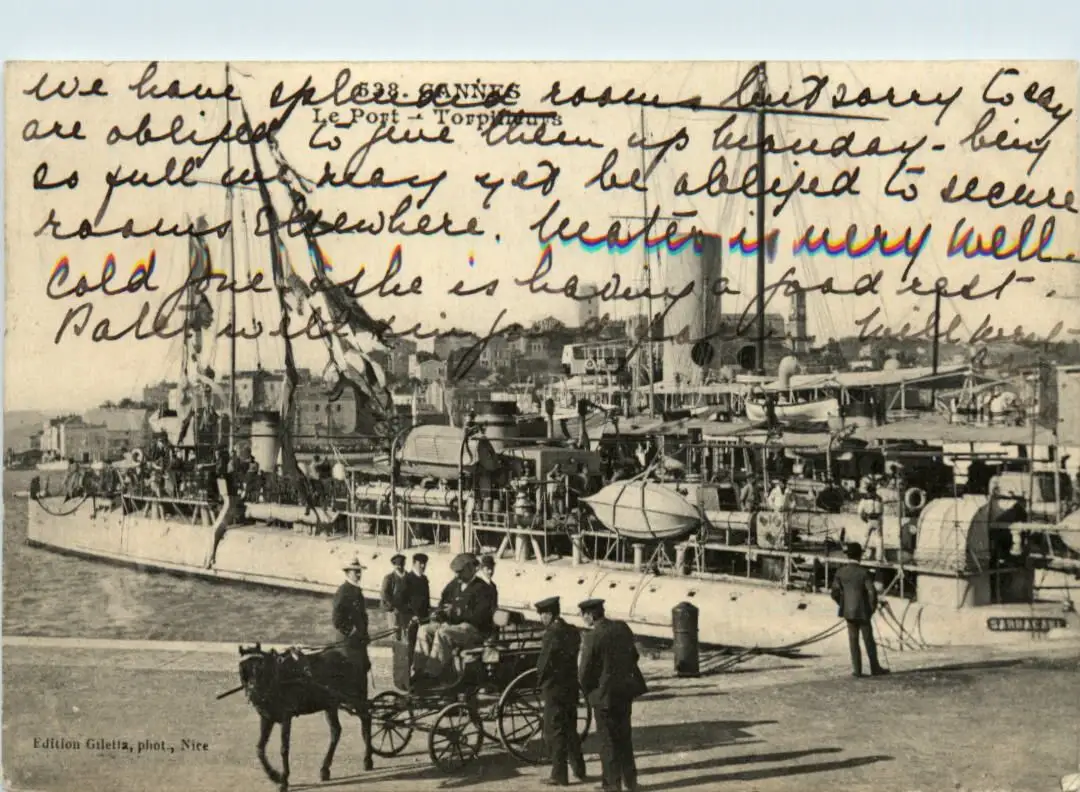 538. CANNES
Le Port - Torpilleurs
we have splendid rooms but sorry to say
are obliged to give them up Monday - being
so full we may yet be obliged to secure
rooms elsewhere. Mater is very well -
Cold gone & she is having a good rest -
will
SARRACENE?
Edition Giletta, phot., Nice